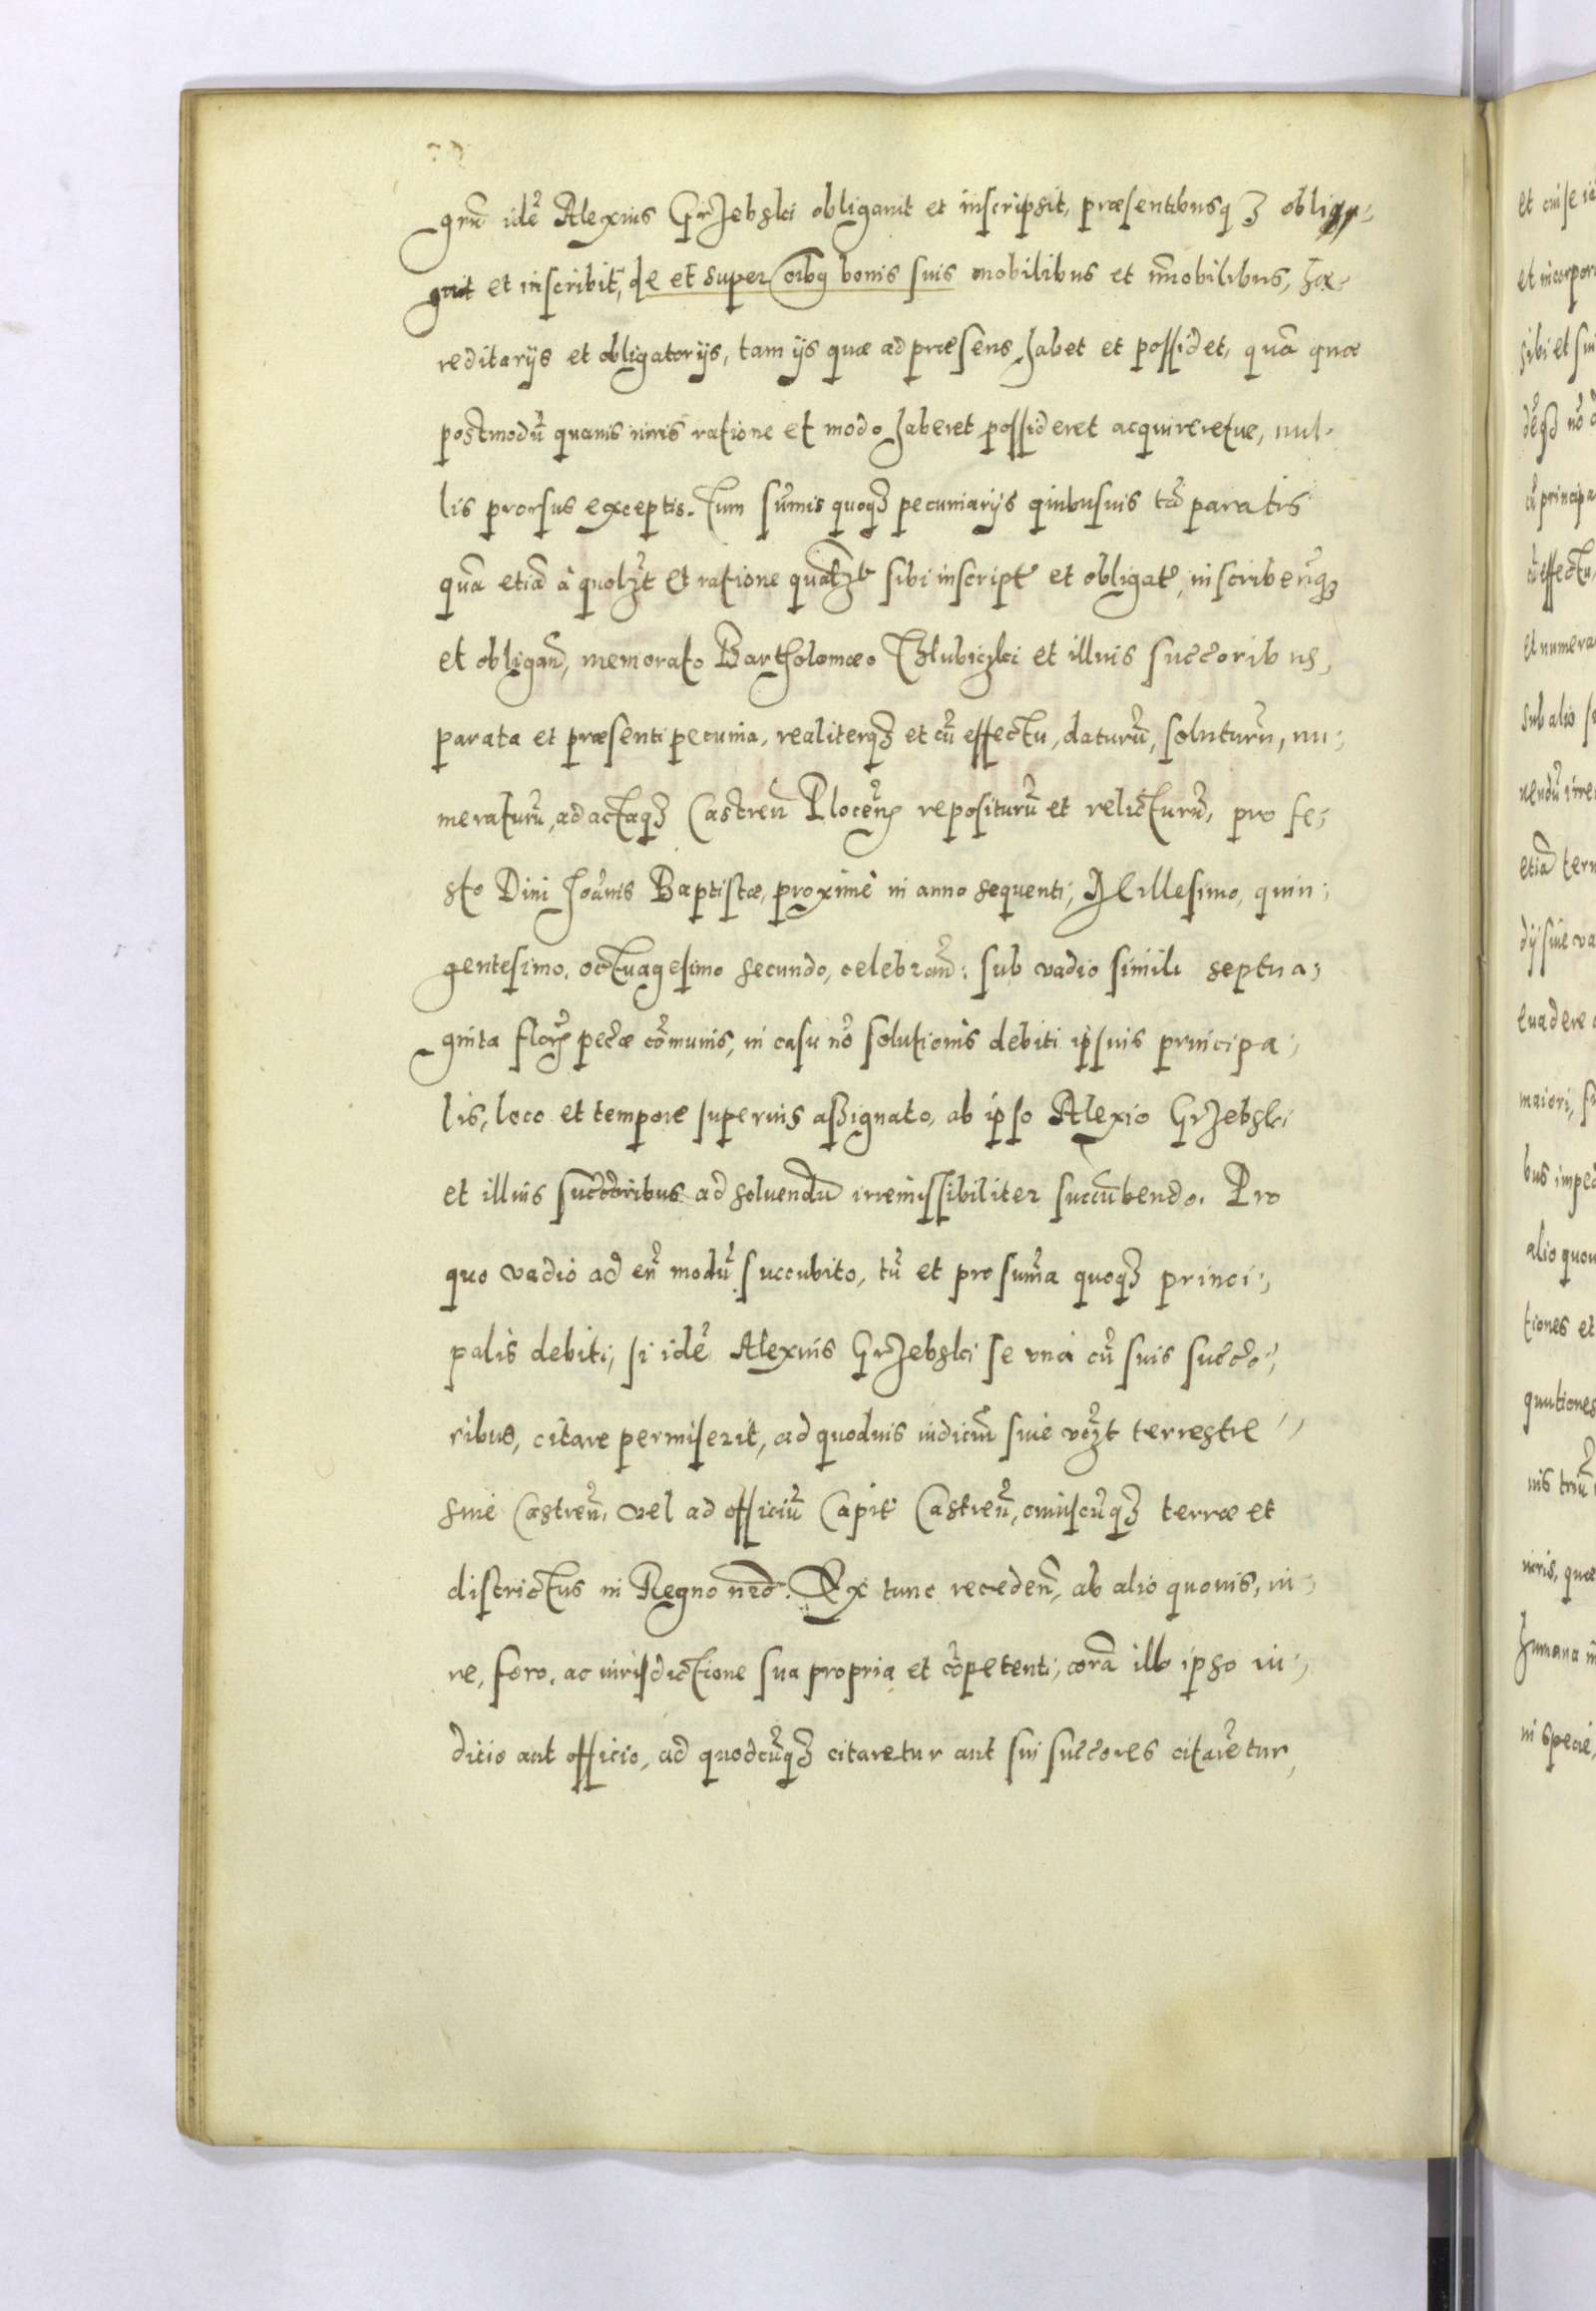 gnũ idẽ Alexius Grzebski obligauit et inscripsit, præsentibusqꝫ obliga-
guit et inscribit, de et super oĩbꝗ bonis suis mobilibus et ĩmobilibus, hæ-
reditarijs et obligatorijs, tam ijs quæ ad præsens habet et possidet, quã quæ
postmodũ quamis iuris ratione et modo haberet possideret acquireretue, nul-
lis prorsus exceptis. Tum sũmis quoqꝫ pecuniarijs quibusuis tã paratis
quã etiã à quolꝫt et ratione qualꝫt sibi inscript̃ et obligat̃, inscribeñqꝫ
et obligañ, memorato Bartholomæo Chlubiczki et illius succoribus,
parata et præsenti pecunia, realiterqꝫ et cũ effectu, daturũ, soluturũ, nu-
meraturũ, ad actaqꝫ Castreñ Ploceñ repositurũ et relicturũ, pro fe-
sto Diui Joãnis Baptistæ, proximè in anno sequenti, Millesimo, quin-
gentesimo, octuagesimo secundo, celebrañ: sub vadio simili septua-
ginta floꝝ pecũæ cõmunis, in casu nõ solutionis debiti ipsius principa-
lis, loco et tempore superius assignato, ab ipso Alexio Grzebski
et illius succoribus ad soluendũ irremissibiliter succũbendo. Pro
quo vadio ad eũ modũ succubito, tũ et pro sum̃a quoqꝫ princi-
palis debiti, si idẽ Alexius Grzebski se vnà cũ suis succo-
ribus, citare permiserit, ad quoduis iudiciũ siue vꝫt terrestre
siue Castreñ, vel ad officiũ Capit̃ Castreñ, cuiuscũqꝫ terræ et
districtus in Regno nr̃o. Ex tunc recedeñ, ab alio quouis, iu-
re, foro, ac iurisdictione sua propria et cõpetenti, corã illo ipso iu-
dicio aut officio, ad quodcũqꝫ citaretur aut sui succores citarẽtur,